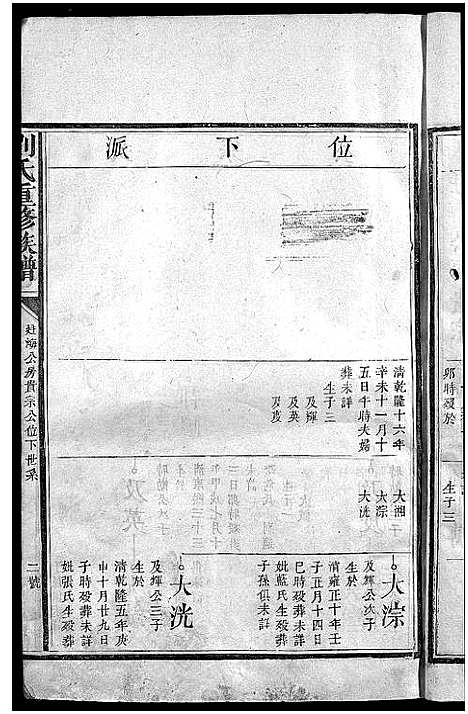 位下派
清乾隆十六年
辛未十一月十
五日午時夫婦
葬未詳
生子三
及輝
及英
及茂
大湘
大淙
大洸
大淙
及輝公次子
生於
清雍正十年壬
子正月十四日
巳時歿葬未詳
妣藍氏生歿葬
子孫俱未詳
大洸
及輝公三子
生於
清乾隆五年庚
申十月廿九日
子時歿葬未詳
妣張氏生歿葬
劉氏重修族譜
公房貴宗公位下世系
二號
卯時歿於
生子三